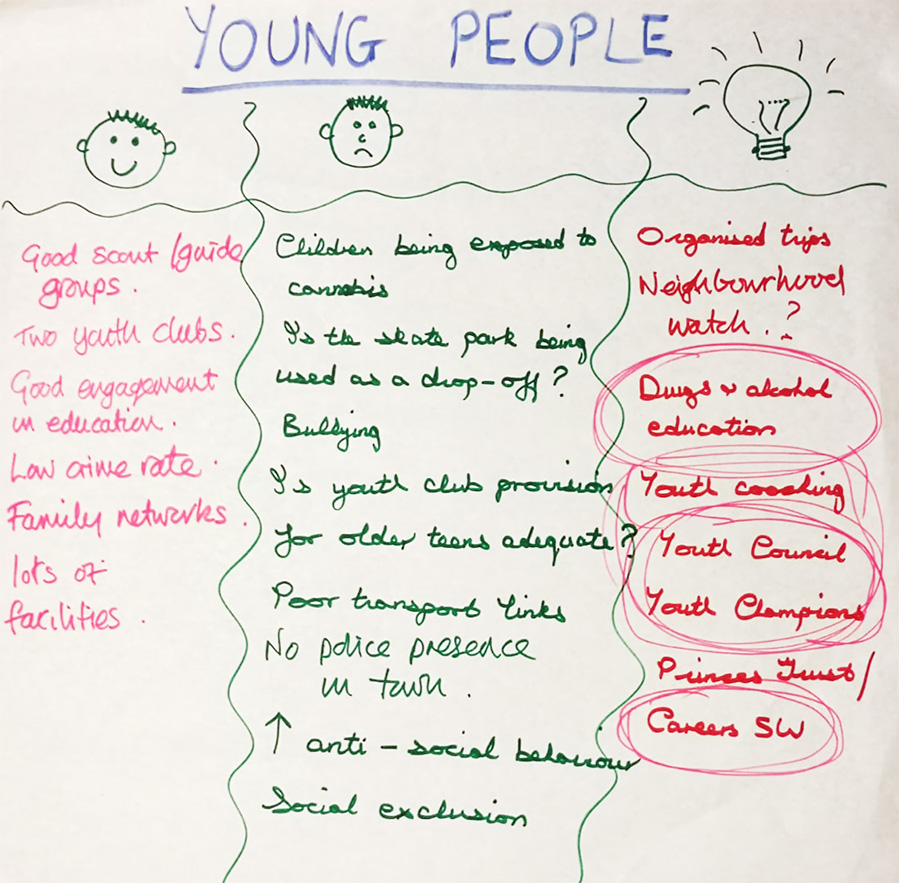 YOUNG PEOPLE
Good scout/guide
groups.
Two youth clubs.
Good engagement
in education.
Low crime rate.
Family networks.
lots of
facilities.
Children being exposed to
cannabis
Is the skate park being
used as a drop-off?
Bullying
Is youth club provision
for older teens adequate?
Poor transport links
No police presence
in town.
↑ anti-social behaviour
Social exclusion
Organised trips
Neighbourhood
watch.?
Drugs & alcohol
education
Youth coaching
Youth Council
Youth Champions
Princes Trust/
Careers SW